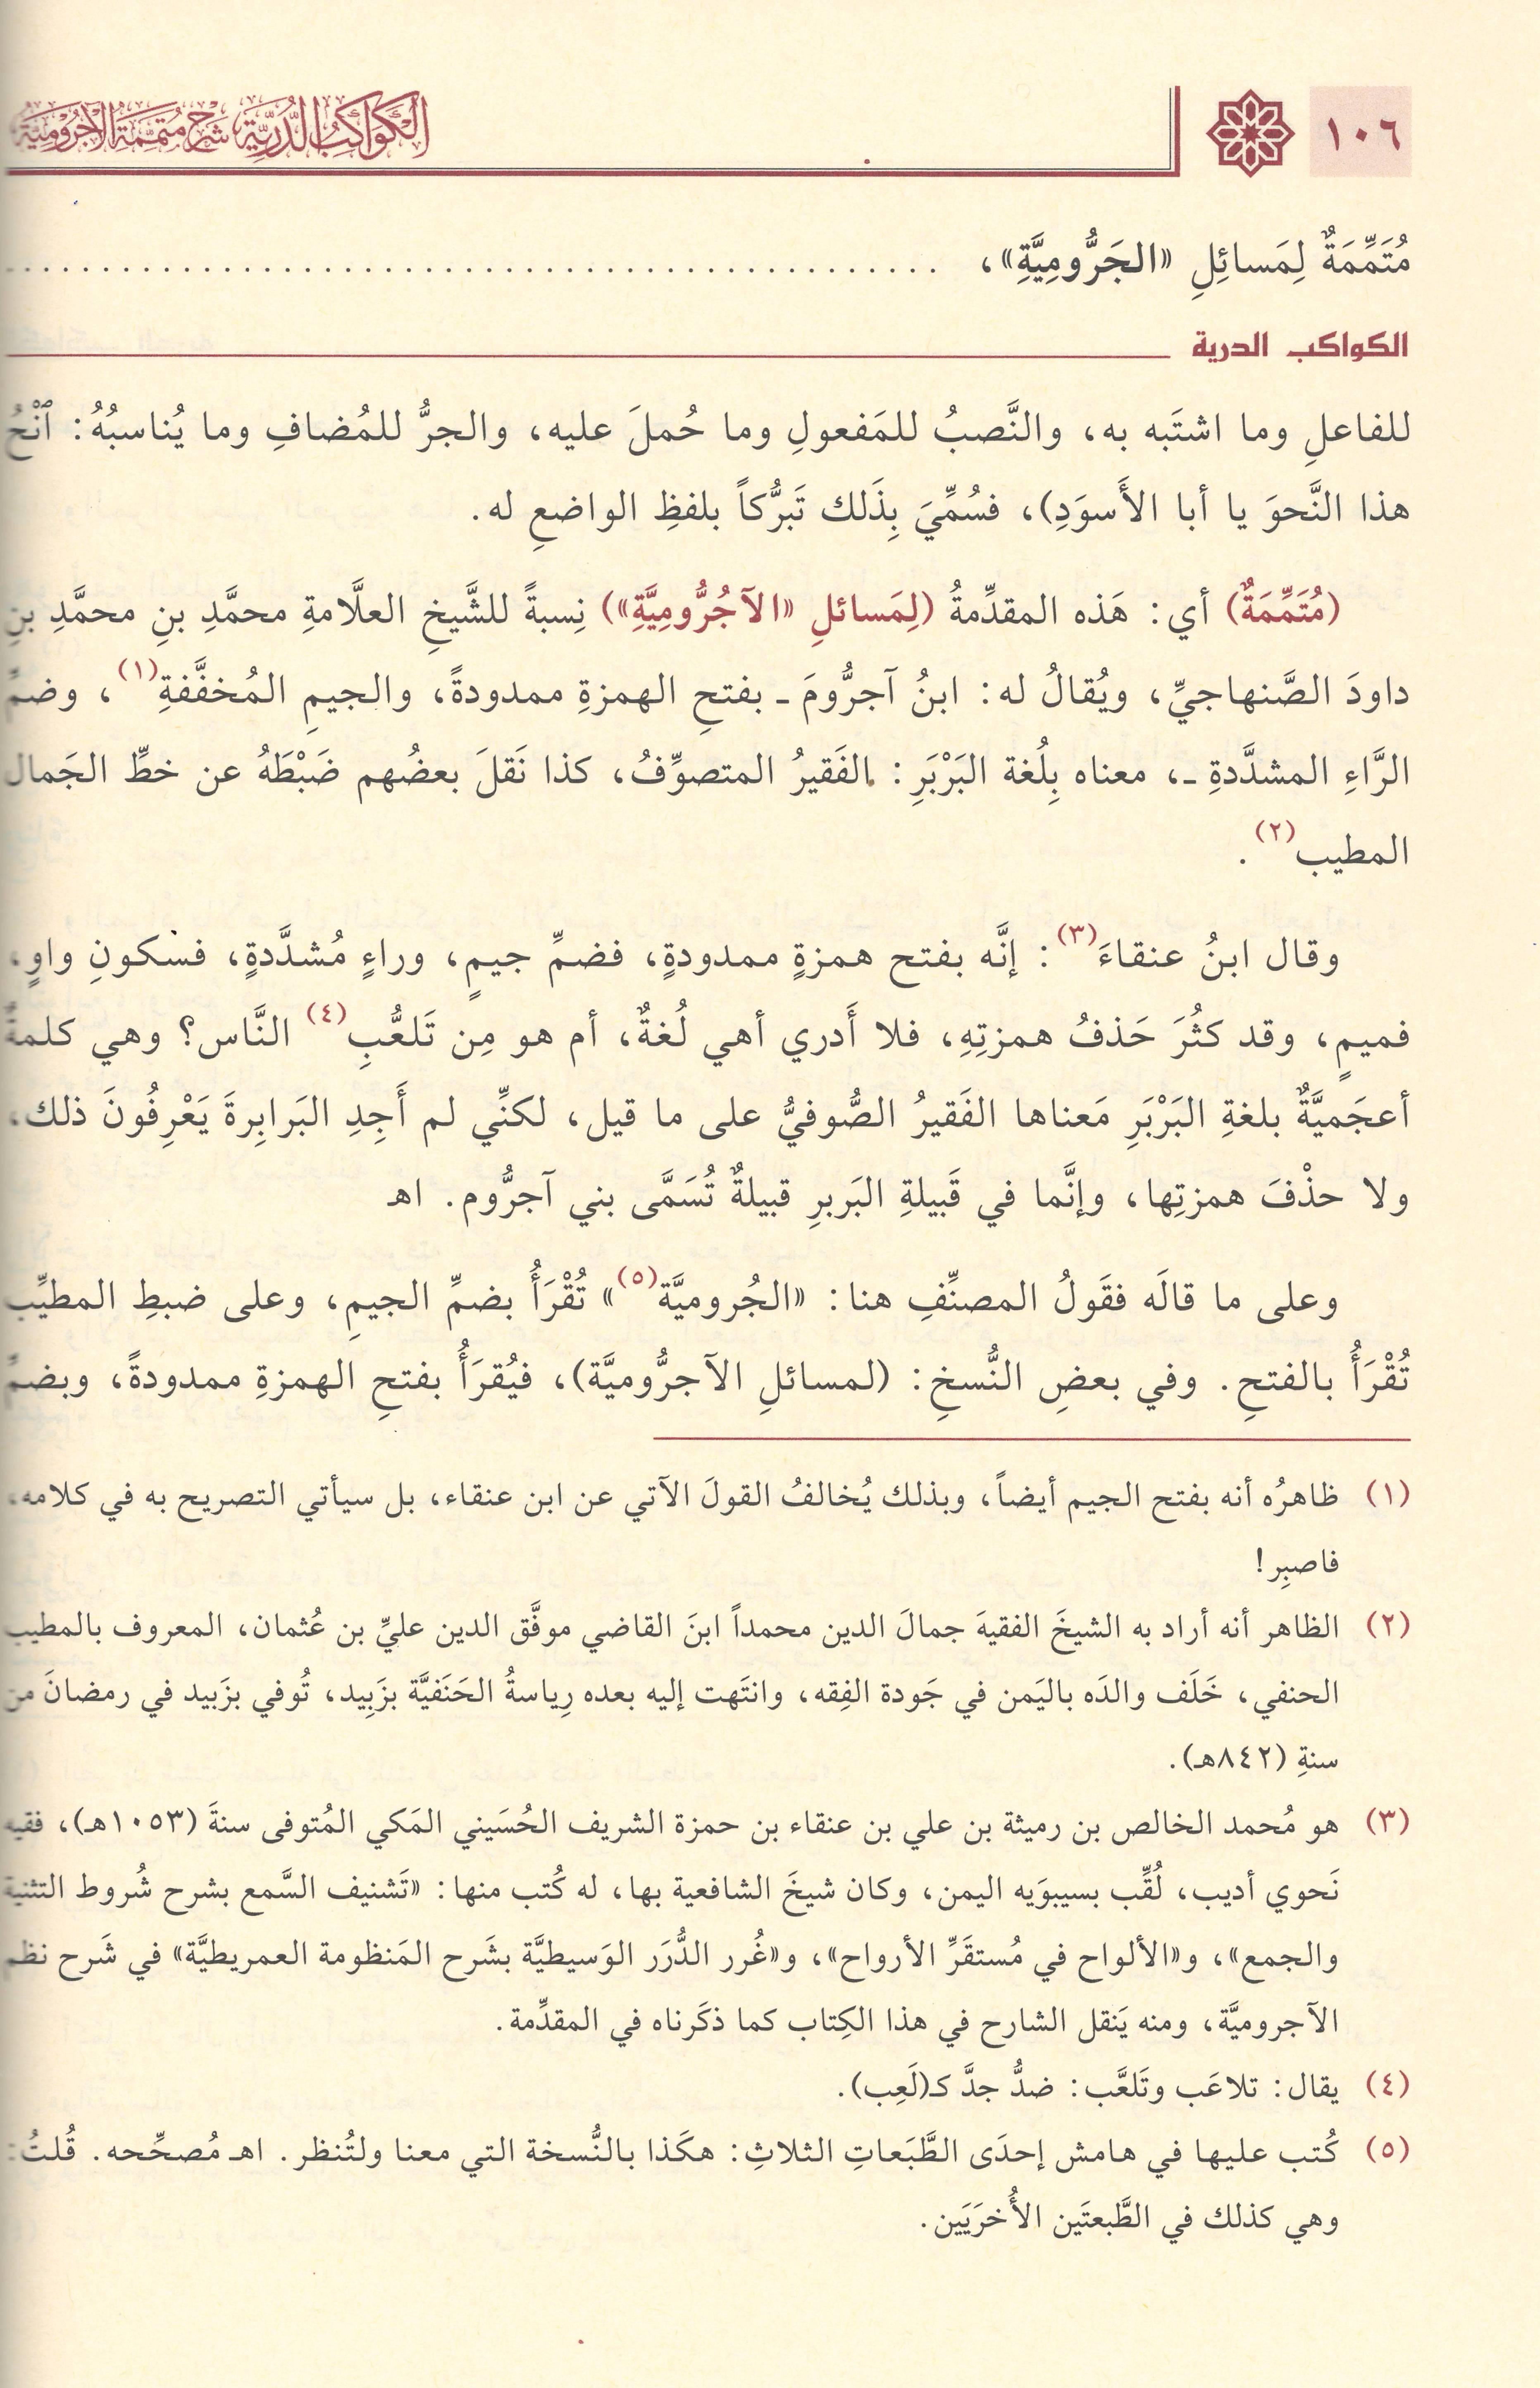 ١٠٦
الكواكب الدرية شرح متممة الآجرومية
مُتَمِّمَةٌ لِمَسائِلِ «الجَرُّومِيَّةِ»، . . . . . . . . . . . . . . . . . . . . . . . . . . . . . . . . . . . . . . . .
الكواكب الدرية
للفاعلِ وما اشتَبه به، والنَّصبُ للمَفعولِ وما حُملَ عليه، والجرُّ للمُضافِ وما يُناسبُهُ: ٱنْحُ
هذا النَّحوَ يا أبا الأَسوَدِ)، فسُمِّيَ بِذَلك تَبرُّكاً بلفظِ الواضعِ له.
(مُتَمِّمَةٌ) أي: هَذه المقدِّمةُ (لِمَسائلِ «الآجُرُّومِيَّةِ») نِسبةً للشَّيخِ العلَّامةِ محمَّدِ بنِ محمَّدِ بنِ
داودَ الصَّنهاجيِّ، ويُقالُ له: ابنُ آجرُّومَ ـ بفتحِ الهمزةِ ممدودةً، والجيمِ المُخفَّفةِ(١)، وضمِّ
الرَّاءِ المشدَّدةِ ـ، معناه بِلُغة البَرْبَرِ: الفَقيرُ المتصوِّفُ، كذا نَقلَ بعضُهم ضَبْطَهُ عن خطِّ الجَمال
المطيب(٢).
وقال ابنُ عنقاءَ(٣): إنَّه بفتح همزةٍ ممدودةٍ، فضمِّ جيمٍ، وراءٍ مُشدَّدةٍ، فسكونِ واوٍ،
فميمٍ، وقد كثُرَ حَذفُ همزتِهِ، فلا أَدري أهي لُغةٌ، أم هو مِن تَلعُّبِ(٤) النَّاس؟ وهي كلمةٌ
أعجَميَّةٌ بلغةِ البَرْبَرِ مَعناها الفَقيرُ الصُّوفيُّ على ما قيل، لكنِّي لم أَجِدِ البَرابِرةَ يَعْرِفُونَ ذلك،
ولا حذْفَ همزتِها، وإنَّما في قَبيلةِ البَربرِ قبيلةٌ تُسَمَّى بني آجرُّوم. اهـ
وعلى ما قالَه فقَولُ المصنِّفِ هنا: «الجُروميَّة(٥)» تُقْرَأُ بضمِّ الجيمِ، وعلى ضبطِ المطيِّب
تُقْرَأُ بالفتحِ. وفي بعضِ النُّسخِ: (لمسائلِ الآجرُّوميَّة)، فيُقرَأُ بفتحِ الهمزةِ ممدودةً، وبضمِّ
(١) ظاهرُه أنه بفتح الجيم أيضاً، وبذلك يُخالفُ القولَ الآتي عن ابن عنقاء، بل سيأتي التصريح به في كلامه،
فاصبِر!
(٢) الظاهر أنه أراد به الشيخَ الفقيهَ جمالَ الدين محمداً ابنَ القاضي موفَّق الدين عليِّ بن عُثمان، المعروف بالمطيب
الحنفي، خَلَف والدَه باليَمن في جَودة الفِقه، وانتَهت إليه بعده رِياسةُ الحَنَفيَّة بزَبِيد، تُوفي بزَبيد في رمضانَ من
سنةِ (٨٤٢هـ).
(٣) هو مُحمد الخالص بن رميثة بن علي بن عنقاء بن حمزة الشريف الحُسَيني المَكي المُتوفى سنةَ (١٠٥٣هـ)، فقيه
نَحوي أديب، لُقِّب بسيبوَيه اليمن، وكان شيخَ الشافعية بها، له كُتب منها: «تَشنيف السَّمع بشرح شُروط التثنية
والجمع»، و«الألواح في مُستقَرِّ الأرواح»، و«غُرر الدُّرَر الوَسيطيَّة بشَرح المَنظومة العمريطيَّة» في شَرح نظم
الآجروميَّة، ومنه يَنقل الشارح في هذا الكِتاب كما ذكَرناه في المقدِّمة.
(٤) يقال: تلاعَب وتَلعَّب: ضدُّ جدَّ كـ(لَعِب).
(٥) كُتب عليها في هامش إحدَى الطَّبَعاتِ الثلاثِ: هكَذا بالنُّسخة التي معنا ولتُنظر. اهـ مُصحِّحه. قُلتُ:
وهي كذلك في الطَّبعتَين الأُخرَيَين.